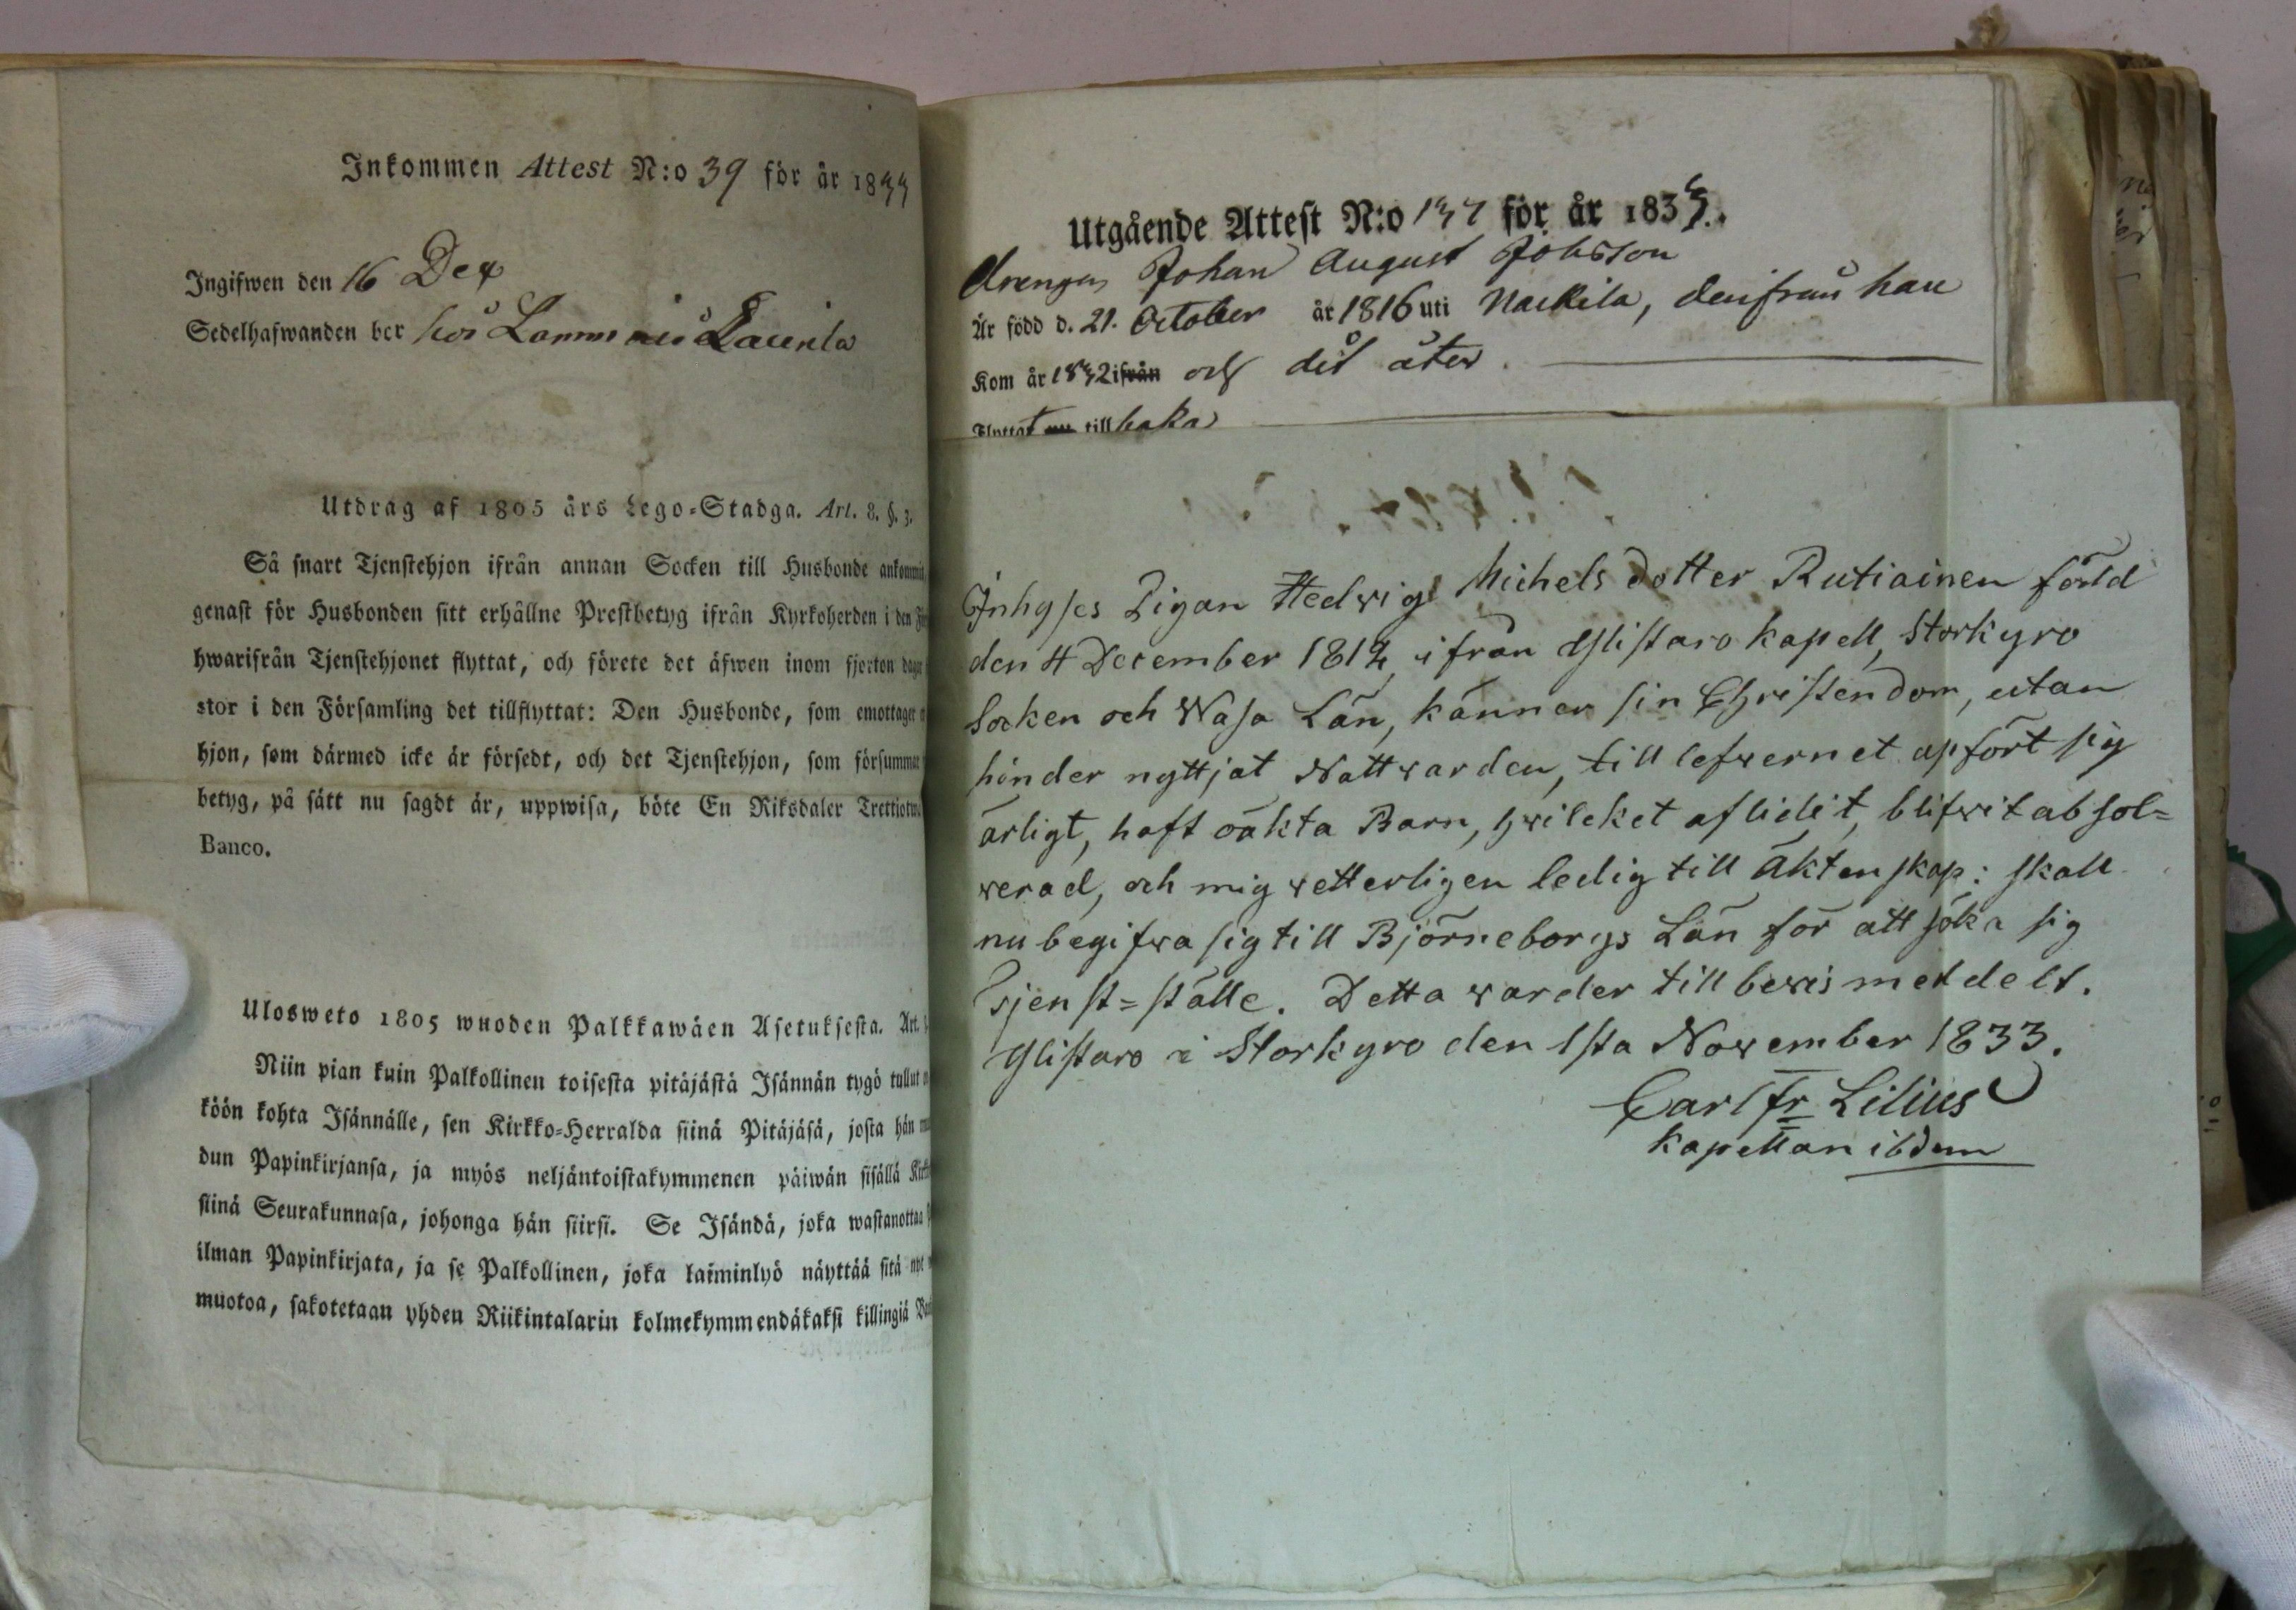 Inkommen Attest N:o 39 för år 1833
Ingifwen den 16 Dec
Sedelhafwanden bor hos Lammais Laurila
Utdrag af 1805 års Lego-Stadga. Art. 8. §. 3.
Så snart Tjenstehjon ifrån annan Socken till Husbonde ankommit,
genast för Husbonden sitt erhållne Prestbetyg ifrån Kyrkoherden i den
hwarifrån Tjenstehjonet flyttat, och förete det äfwen inom fjorton dagar
stor i den Församling det tillflyttat: Den Husbonde, som emottager
hjon, som därmed icke är försedt, och det Tjenstehjon, som försummar
betyg, på sätt nu sagdt är, uppwisa, böte En Riksdaler
Banco.
Ulosweto 1805 wuoden Palkkawäen Asetuksesta. Art.
Niin pian kuin Palkollinen toisesta pitäjästä Isännän tygö tullut
köön kohta Isännälle, sen Kirkko-Herralda siinä Pitäjäsä, josta hän
dun Papinkirjansa, ja myös neljäntoistakymmenen päiwän sisällä
siinä Seurakunnasa, johonga hän siirsi. Se Isändä, joka wastanottaa
ilman Papinkirjata, ja se Palkollinen, joka laiminlyö näyttää sitä
muotoa, sakotetaan yhden Riikintalarin kolmekymmendäkaksi killingiä
Utgående Attest N:o 137 för år 1833.
Drengen Johan August Jobsson
Är född d. 21. October år 1816 uti Nackila, derifrån han
Kom år 1832 ifrån och dit åter.
Flyttat nu tillbaka
Inhyses Pigan Hedwig Michelsdotter Rutiainen född
den 4 December 1812, ifrån Ylistaro kapell, Storkyro
Socken och Wasa Län, känner sin Christendom, utan
hinder nyttjat Nattwarden, till lefwernet upfört sig
ärligt, haft oäkta Barn, hwilcket aflidit, blifwit absol=
verad, och mig vetterligen ledig till äktenskap: skall
nu begifwa sig till Björneborgs Län för att söka sig
Tjenst=ställe. Detta warder till bewis meddelt.
Ylistaro i Storkyro den 1sta November 1833.
Carl Fr Lilius
kapellan ibdem